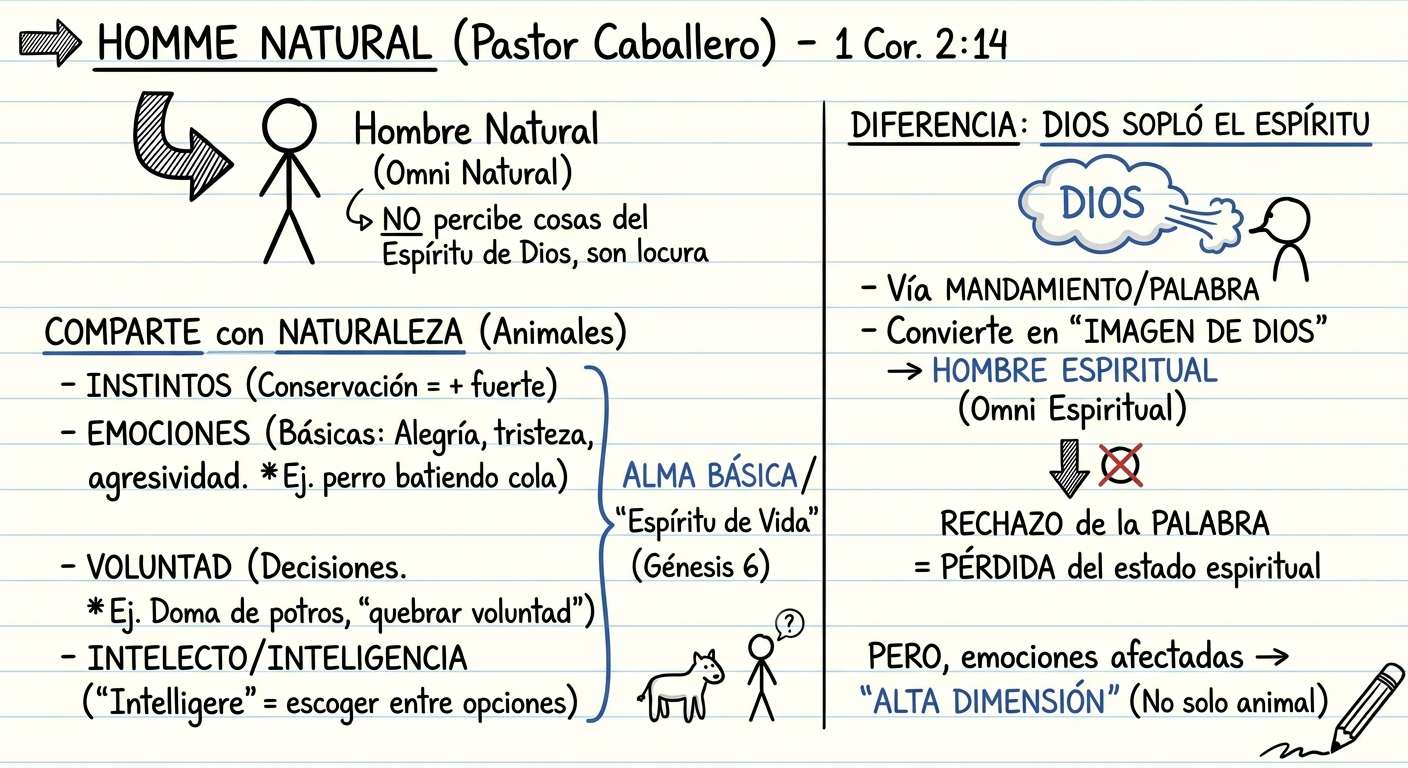 HOMME NATURAL (Pastor Caballero) - 1 Cor. 2:14
Hombre Natural
(Omni Natural)
NO percibe cosas del
Espíritu de Dios, son locura
COMPARTE con NATURALEZA (Animales)
- INSTINTOS (Conservación = + fuerte)
- EMOCIONES (Básicas: Alegría, tristeza,
agresividad. *Ej. perro batiendo cola)
- VOLUNTAD (Decisiones.
*Ej. Doma de potros, “quebrar voluntad”)
- INTELECTO/INTELIGENCIA
(“Intelligere” = escoger entre opciones)
ALMA BÁSICA/
“Espíritu de Vida”
(Génesis 6)
?
DIFERENCIA: DIOS SOPLÓ EL ESPÍRITU
DIOS
- Vía MANDAMIENTO/PALABRA
- Convierte en “IMAGEN DE DIOS”
→ HOMBRE ESPIRITUAL
(Omni Espiritual)
RECHAZO de la PALABRA
= PÉRDIDA del estado espiritual
PERO, emociones afectadas →
“ALTA DIMENSIÓN” (No solo animal)